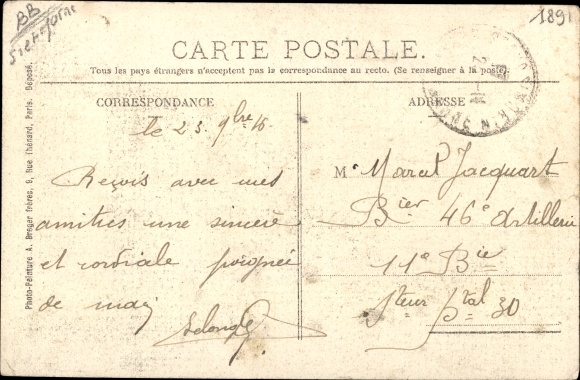 BB
S et Marne
1891
CARTE POSTALE.
Tous les pays étrangers n'acceptent pas la correspondance au recto. (Se renseigner à la poste).
CORRESPONDANCE
ADRESSE
le 23 9bre 16
Reçois avec mes
amitiés une sincère
et cordiale poignée
de main
M Marcel Jacquart
Bier 46e Artillerie
11e Bie
Steur Ptal 30
Photo-Peinture A. Breger frères, 9, Rue Thénard, Paris. Déposé.